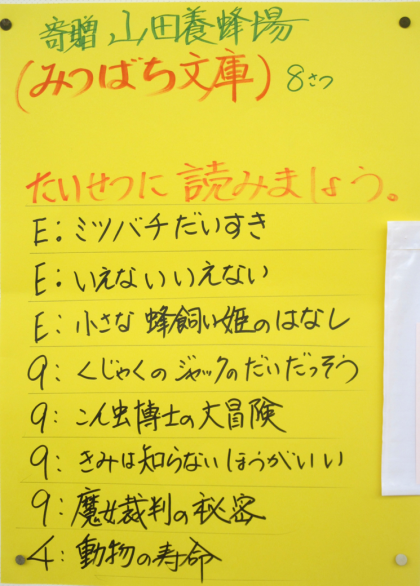 寄贈 山田養蜂場
(みつばち文庫) 8さつ
たいせつに 読みましょう。
E: ミツバチだいすき
E: いえないいえない
E: 小さな 蜂飼い姫のはなし
9: くじゃくのジャックのだいだっそう
9: こん虫博士の大冒険
9: きみは知らないほうがいい
9: 魔女裁判の秘密
4: 動物の寿命